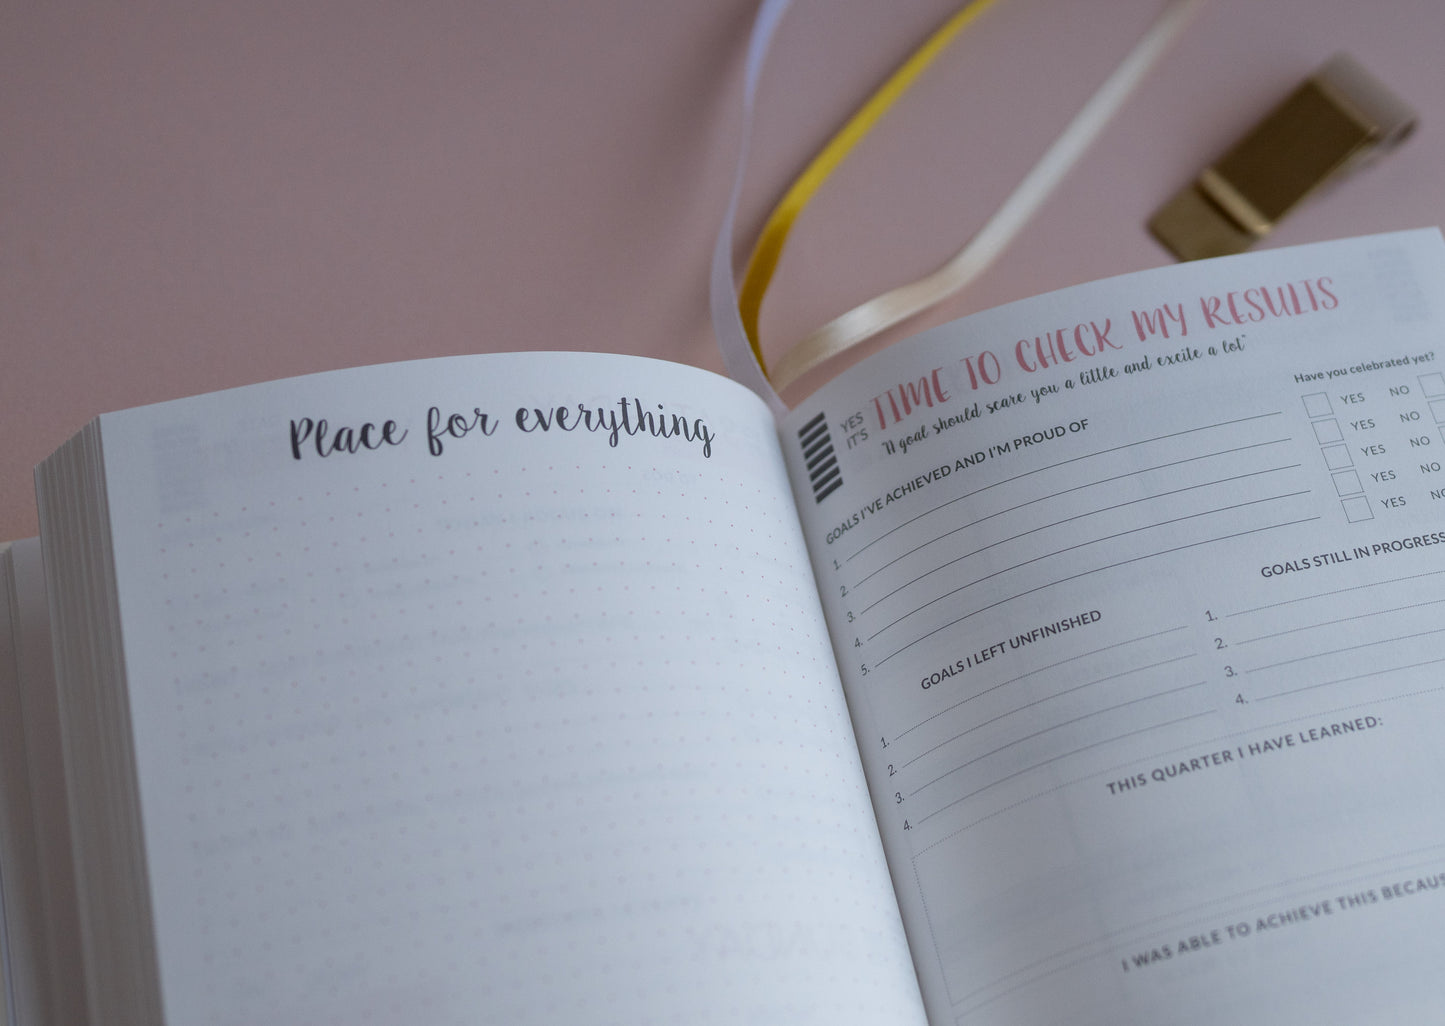 Place for everything
YES IT'S TIME TO CHECK MY RESULTS
"A goal should scare you a little and excite a lot"
GOALS I'VE ACHIEVED AND I'M PROUD OF
Have you celebrated yet?
1.
2.
3.
4.
5.
YES NO
YES NO
YES NO
YES NO
YES NO
GOALS I LEFT UNFINISHED
1.
2.
3.
4.
GOALS STILL IN PROGRESS
1.
2.
3.
4.
THIS QUARTER I HAVE LEARNED:
I WAS ABLE TO ACHIEVE THIS BECAUS